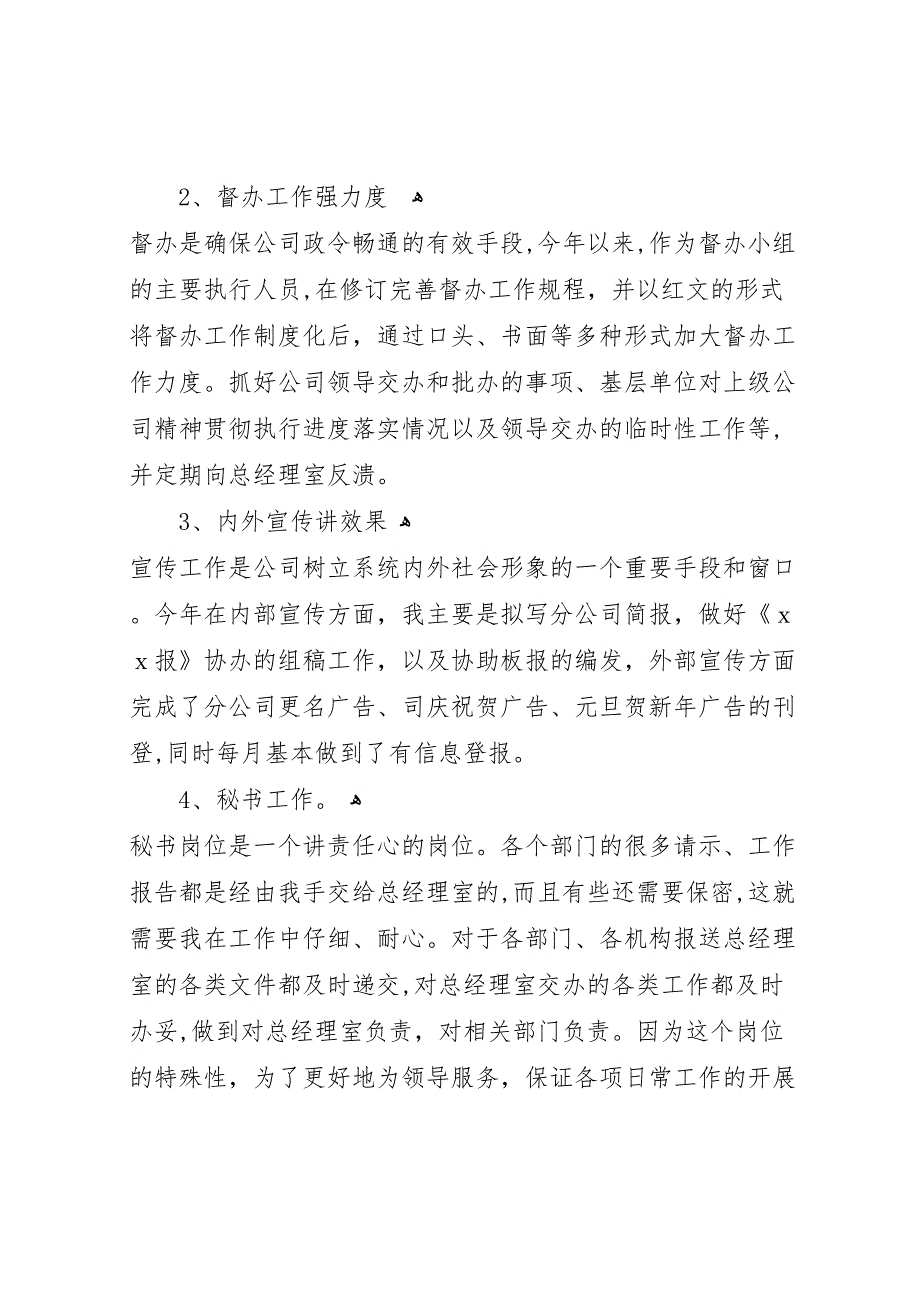 2、督办工作强力度 ﻫ
督办是确保公司政令畅通的有效手段,今年以来,作为督办小组
的主要执行人员,在修订完善督办工作规程，并以红文的形式
将督办工作制度化后，通过口头、书面等多种形式加大督办工
作力度。抓好公司领导交办和批办的事项、基层单位对上级公
司精神贯彻执行进度落实情况以及领导交办的临时性工作等,
并定期向总经理室反溃。
3、内外宣传讲效果 ﻫ
宣传工作是公司树立系统内外社会形象的一个重要手段和窗口
。今年在内部宣传方面，我主要是拟写分公司简报，做好《ｘ
ｘ报》协办的组稿工作，以及协助板报的编发，外部宣传方面
完成了分公司更名广告、司庆祝贺广告、元旦贺新年广告的刊
登,同时每月基本做到了有信息登报。
4、秘书工作。 ﻫ
秘书岗位是一个讲责任心的岗位。各个部门的很多请示、工作
报告都是经由我手交给总经理室的,而且有些还需要保密,这就
需要我在工作中仔细、耐心。对于各部门、各机构报送总经理
室的各类文件都及时递交,对总经理室交办的各类工作都及时
办妥,做到对总经理室负责，对相关部门负责。因为这个岗位
的特殊性，为了更好地为领导服务，保证各项日常工作的开展